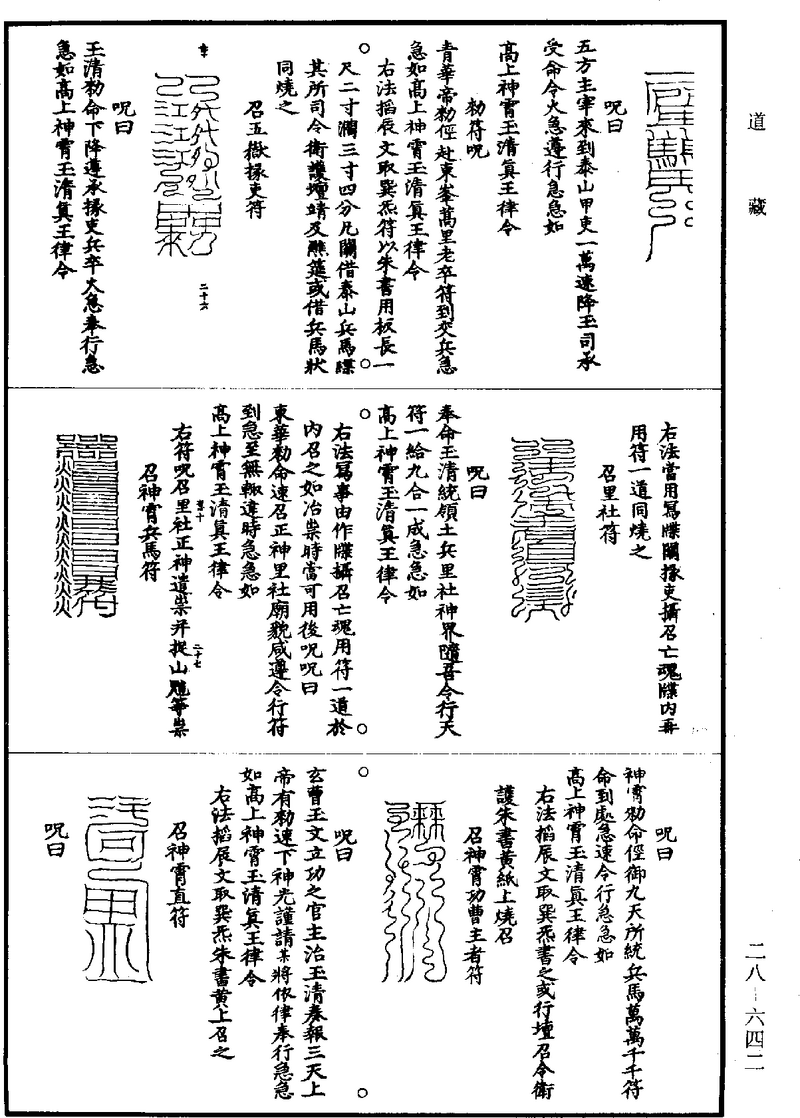 道藏
呪曰
五方主宰來到泰山甲吏一萬速降玉司承
受命令火急遵行急急如
高上神霄玉清真王律令
勑符呪
青華帝勑徑赴東峯蒿里老卒符到交兵急
急如高上神霄玉清真王律令
右法掐辰文取巽炁符以朱書用板長一
尺二寸濶三寸四分凡關借泰山兵馬牒
其所司令衛護壇靖及醮筵或借兵馬狀
同燒之
召五嶽掾吏符
二十六
呪曰
玉清勑命下降遵承掾吏兵卒火急奉行急
急如高上神霄玉清真王律令
右法當用寫牒關掾吏攝召亡魂牒内再
用符一道同燒之
召里社符
呪曰
奉命玉清統領土兵里社神界隨吾令行天
符一給九合一成急急如
高上神霄玉清真王律令
右法寫事由作牒攝召亡魂用符一道於
内召之如治祟時當可用後呪呪曰
東華勑命速召正神里社廟貌咸遵令行符
到急至無輙違時急急如
高上神霄玉清真王律令
二十七
右符呪召里社正神遣祟并捉山魈等祟
召神霄兵馬符
呪曰
神霄勑命徑御九天所統兵馬萬萬千千符
命到處急速令行急急如
高上神霄玉清真王律令
右法掐辰文取巽炁書之或行壇召令衛
護朱書黄紙上燒召
召神霄功曹主者符
呪曰
玄曹玉文立功之官主治玉清奏報三天上
帝有勑速下神光謹請某將依律奉行急急
如高上神霄玉清真王律令
右法掐辰文取巽炁朱書黄上召之
召神霄直符
呪曰
二八—六四二